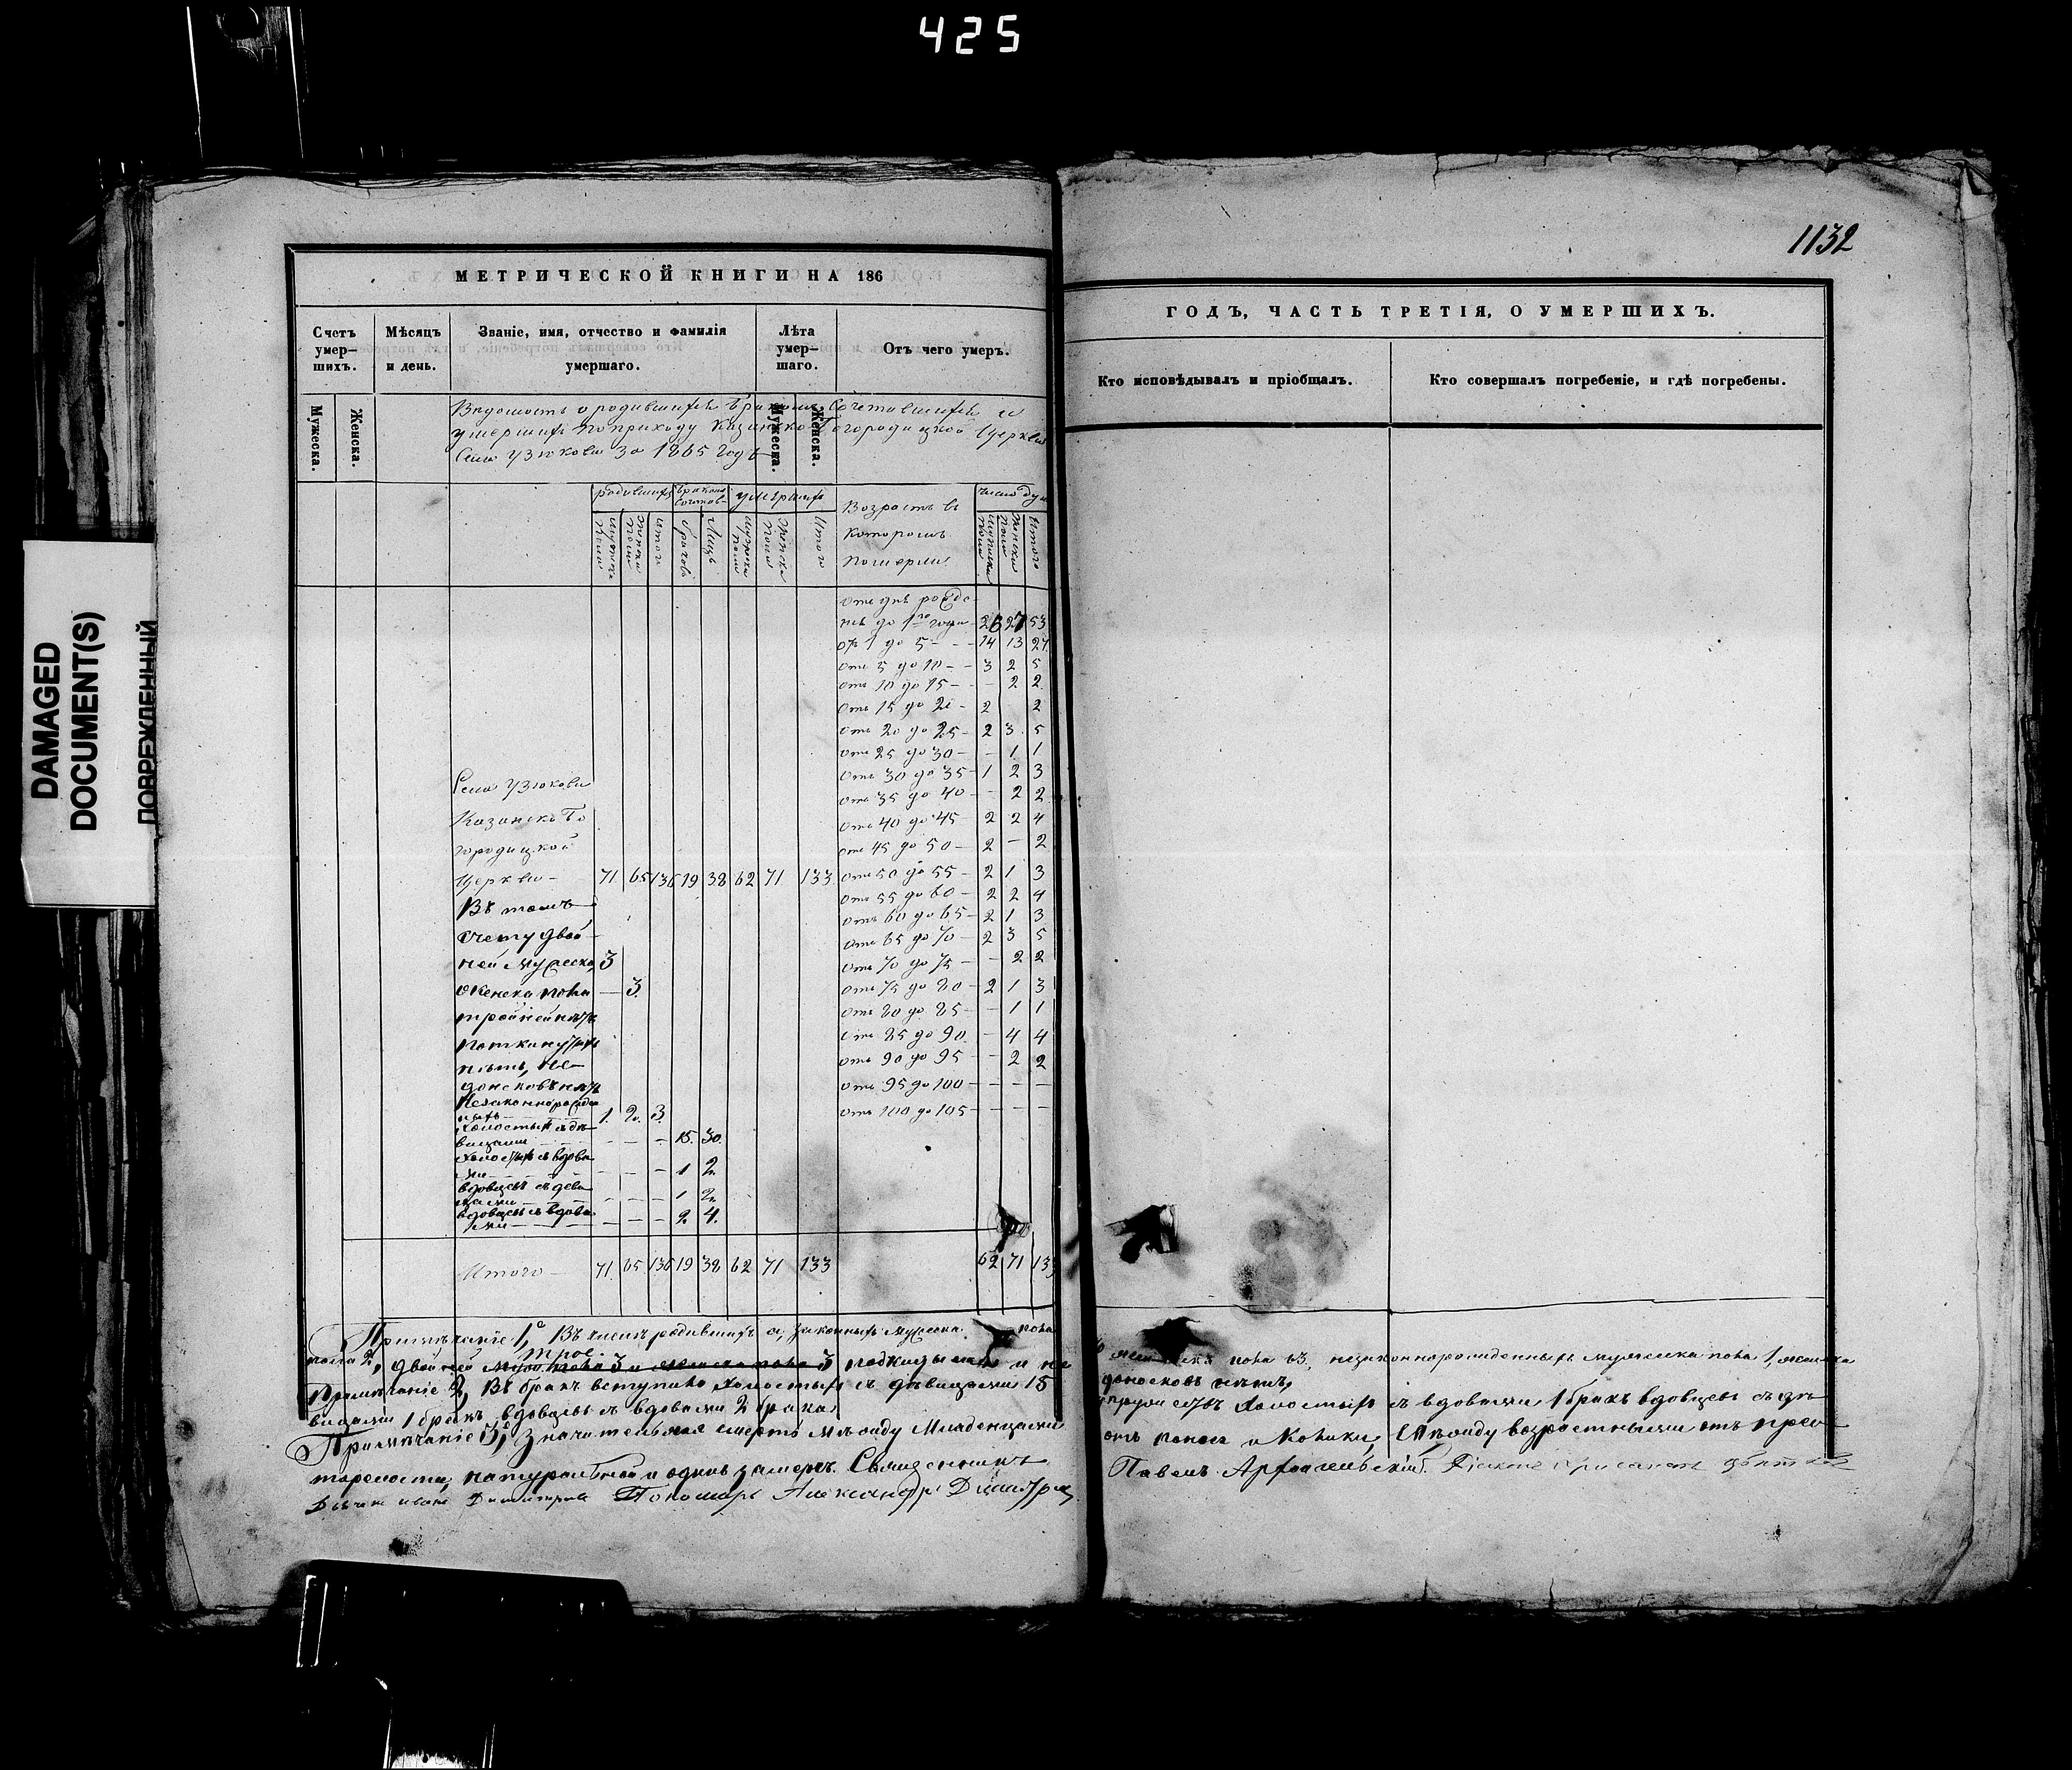 425
DAMAGED
DOCUMENT(S)
ПОВРЕЖДЕННЫЙ
1132
МЕТРИЧЕСКОЙ КНИГИ НА 186
Счетъ умер-шихъ. Мѣсяцъ и день. Званіе, имя, отчество и фамилія умершаго. Лѣта умер-шаго. Отъ чего умеръ.
Мужеска. Женска. Мужеска. Женска.
Вѣдомость о родившихся бракомъ сочетавшихся и
умершихъ по приходу Казанско Богородицкой Церкви
села Узюкова за 1865 годъ
родившихся бракомъ сочетав- умершихъ Возрастъ въ которомъ померли число душ
мужеска пола женска пола итого браковъ Лицъ мужеска пола женска пола Итого мужеска пола женска пола Итого
отъ дня рожде-
нія до 1го года 26 27 53
отъ 1 до 5 - - 14 13 27
отъ 5 до 10 - - 3 2 5
отъ 10 до 15 - - 2 2
отъ 15 до 20 - 2 2
отъ 20 до 25 - 2 3 5
отъ 25 до 30 - - 1 1
отъ 30 до 35 - 1 2 3
отъ 35 до 40 - - 2 2
отъ 40 до 45 - 2 2 4
отъ 45 до 50 - 2 - 2
отъ 50 до 55 - 2 1 3
отъ 55 до 60 - 2 2 4
отъ 60 до 65 - 2 1 3
отъ 65 до 70 - 2 3 5
отъ 70 до 75 - - 2 2
отъ 75 до 80 - 2 1 3
отъ 80 до 85 - - 1 1
отъ 85 до 90 - 4 4
отъ 90 до 95 - - 2 2
отъ 95 до 100 - - - -
отъ 100 до 105 - - - -
Села Узюкова
Казанско Бо
городицкой
Церкви - 71 65 136 19 38 62 71 133
Въ томъ
счету двой-
ней мужеска 3
женска пола - 3.
тройней нѣтъ
поткинутыхъ
нѣтъ, не-
доносковъ нѣтъ
Незаконнорожден
ныхъ 1. 2. 3.
холостыхъ съ дѣ-
вицами - - - 15. 30.
холостыхъ съ вдова-
ми - - - 1 2
вдовцевъ съ дѣви
цами - - - 1 2
вдовцевъ съ вдова-
ми - - - 2. 4.
Итого 71. 65 136 19 38 62 71 133 62 71 133
ГОДЪ, ЧАСТЬ ТРЕТІЯ, О УМЕРШИХЪ.
Кто исповѣдывалъ и пріобщалъ. Кто совершалъ погребеніе, и гдѣ погребены.
Примѣчаніе 1е, Въ числѣ родившихъ законныхъ мужеска пола женска пола 63, незаконнорожденныхъ мужеска пола 1, женска
трое.
пола 2, двойней муж. пола 3 и женска пола 3 подкидыш и не доносковъ нѣтъ,
Примѣчаніе 2, Въ бракъ вступило холостыхъ съ дѣвицами 15 холостыхъ съ вдовами 1 бракъ вдовцевъ съ дѣ
вицами 1 бракъ вдовцевъ съ вдовами 2 брака
Примѣчаніе 3е, Значительная смерть между Младенцами отъ поноса и Колики, Между возрастными отъ прес
тарелости, натуральной Священникъ Павелъ Архангельскій. Діаконъ
Дьячек Иванъ Димитріев Пономарь Александръ Димитр